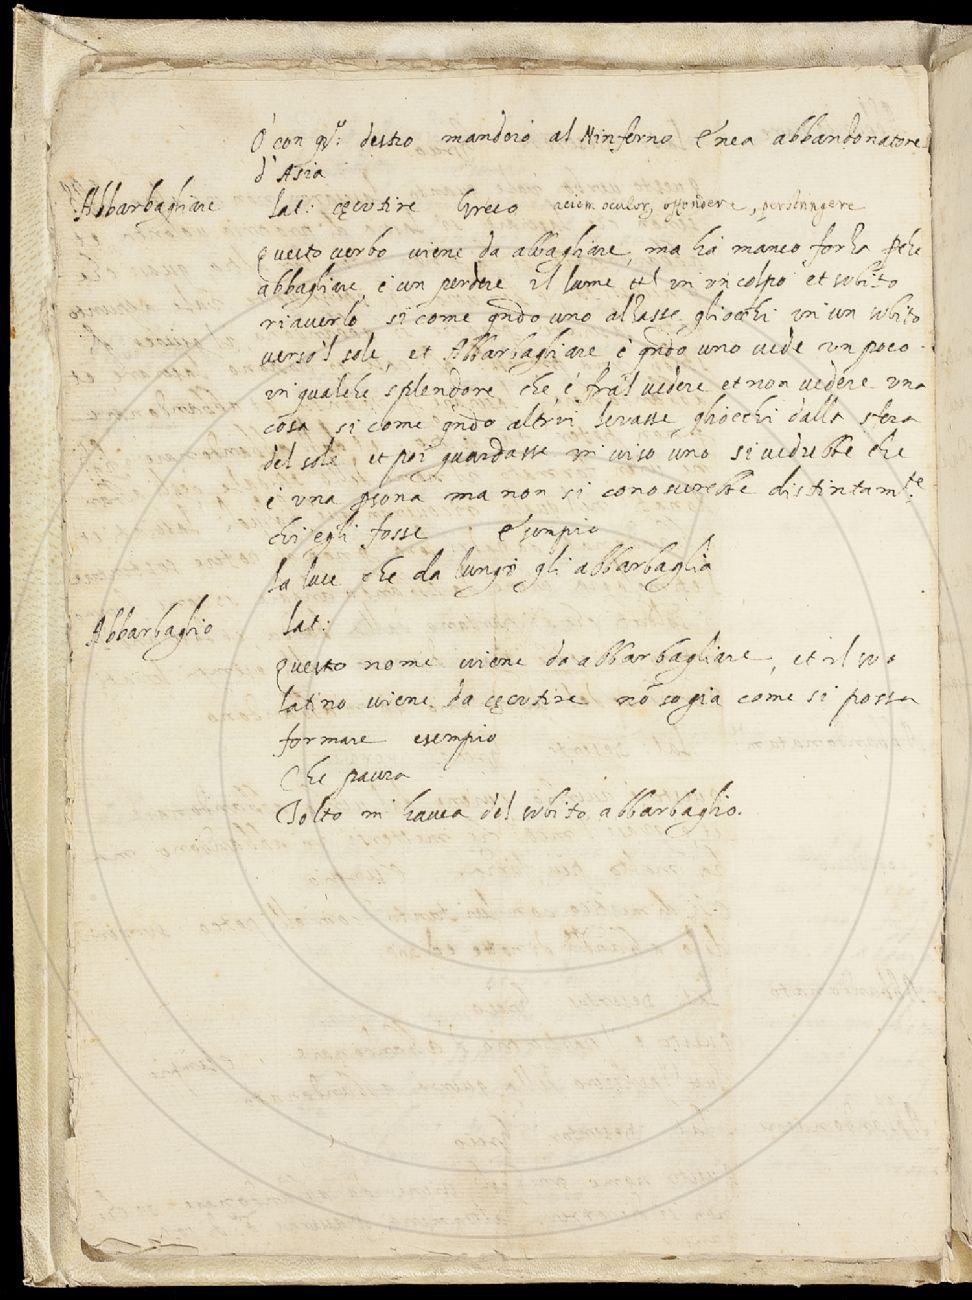 O con qu: destro mandoró al Ninferno Enea abbandonatore
d'Asia
Abbarbagliare lat: cęcutire Greco aciem oculor, offendere, perstringere
questo verbo viene da abbagliare, ma ha manco forza pche
abbagliare, é un perdere il lume et in un colpo et subito
riaverlo si come qndo uno alzasse gliocchi in un subito
verso'l sole, et Abbarbagliare é qndo uno vede un poco
in qualche splendore che é fra'l vedere et non vedere una
cosa si come qndo altrui levasse gliocchi dalla sfera
del sole et poi guardasse in viso uno si vedrebbe che
é una psona ma non si conoscerebbe distintamte
chi egli fosse Esempio
la luce che da lungi gli abbarbaglia
Abbarbaglio lat:
questo nome viene da abbarbagliare, et il suo
latino viene da cęcutire nō so gia come si possa
formare esempio
Che paura
Tolto m havea del subito abbarbaglio.